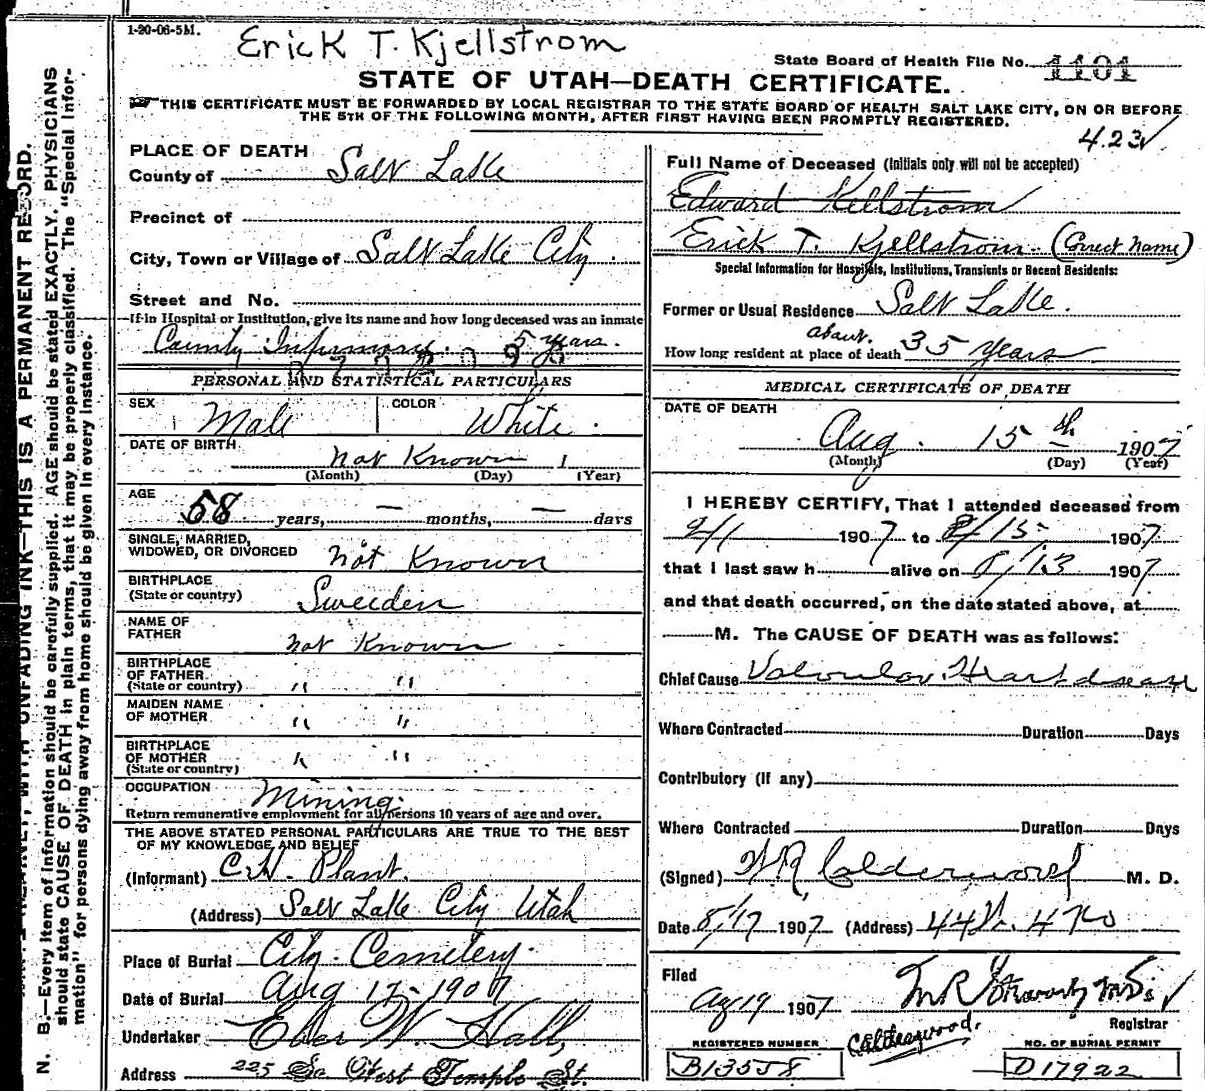 1-20-06-5M.
Erick T. Kjellstrom
State Board of Health File No. 1101
STATE OF UTAH—DEATH CERTIFICATE.
THIS CERTIFICATE MUST BE FORWARDED BY LOCAL REGISTRAR TO THE STATE BOARD OF HEALTH SALT LAKE CITY, ON OR BEFORE
THE 5TH OF THE FOLLOWING MONTH, AFTER FIRST HAVING BEEN PROMPTLY REGISTERED.
423
PLACE OF DEATH
County of Salt Lake
Precinct of
City, Town or Village of Salt Lake City.
Street and No.
If in Hospital or Institution, give its name and how long deceased was an inmate
County Infirmary. 5 years.
PERSONAL AND STATISTICAL PARTICULARS
SEX Male COLOR White.
DATE OF BIRTH not Known 1
(Month) (Day) (Year)
AGE
58 years, — months, — days
SINGLE, MARRIED,
WIDOWED, OR DIVORCED not Known
BIRTHPLACE
(State or country) Sweeden
NAME OF
FATHER not Known
BIRTHPLACE
OF FATHER.
(State or country) " "
MAIDEN NAME
OF MOTHER " "
BIRTHPLACE
OF MOTHER
(State or country) " "
OCCUPATION Mining.
Return remunerative employment for all persons 10 years of age and over.
THE ABOVE STATED PERSONAL PARTICULARS ARE TRUE TO THE BEST
OF MY KNOWLEDGE AND BELIEF
(Informant) C.H. Plant.
(Address) Salt Lake City Utah
Place of Burial City Cemetery.
Date of Burial Aug 17 - 1907
Undertaker Eber W. Hall,
Address 225 So West Temple St.
Full Name of Deceased (Initials only will not be accepted)
Edward Kellstrom
Erick T. Kjellstrom (Correct Name)
Special Information for Hospitals, Institutions, Transients or Recent Residents:
Former or Usual Residence Salt Lake.
about.
How long resident at place of death 35 years
MEDICAL CERTIFICATE OF DEATH
DATE OF DEATH
Aug. 15th 1907
(Month) (Day) (Year)
I HEREBY CERTIFY, That I attended deceased from
2/1 1907 to 8/15 1907
that I last saw h alive on 8/13 1907
and that death occurred, on the date stated above, at
M. The CAUSE OF DEATH was as follows:
Chief Cause Valvular Heart disease
Where Contracted Duration Days
Contributory (if any)
Where Contracted Duration Days
(Signed) W R Calderwood M. D.
Date 8/17 1907 (Address)
Filed
Aug 19 1907
Registrar
Calderwood.
REGISTERED NUMBER
B13558
NO. OF BURIAL PERMIT
D17922
N. B.—Every item of information should be carefully supplied. AGE should be stated EXACTLY. PHYSICIANS
should state CAUSE OF DEATH in plain terms, that it may be properly classified. The "Special Infor-
mation" for persons dying away from home should be given in every instance.
WITH UNFADING INK—THIS IS A PERMANENT RECORD.